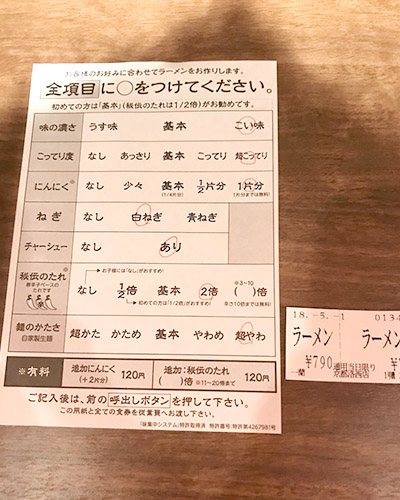 お客様のお好みに合わせてラーメンをお作りします。
全項目に○をつけてください。
初めての方は「基本」(秘伝のたれは1/2倍)がお勧めです。
味の濃さ うす味 基本 こい味
こってり度 なし あっさり 基本 こってり 超こってり
にんにく※ なし 少々 基本 1/2片分 1片分
(1/4片分) (1片分までは無料)
ねぎ なし 白ねぎ 青ねぎ
チャーシュー なし あり
お子様には「なし」がおすすめ!
秘伝のたれ※ なし 1/2倍 基本 2倍 ( )倍
唐辛子ベースのたれです
※3~10
初めての方は「1/2倍」がおすすめ!
※10倍までは無料
麺のかたさ 超かた かため 基本 やわめ 超やわ
自家製生麺
※有料 追加にんにく(+2片分) 120円 追加:秘伝のたれ ( )倍 ※11~20倍まで 120円
ご記入後は、前の呼出しボタンを押して下さい。
この用紙と全ての食券を従業員へお渡し下さい。
「味集中システム」特許取得済 特許番号:特許第4267981号
18.-5.-1 0134
ラーメン ラーメ
¥790 通用当日限り
京都洛西店
一蘭